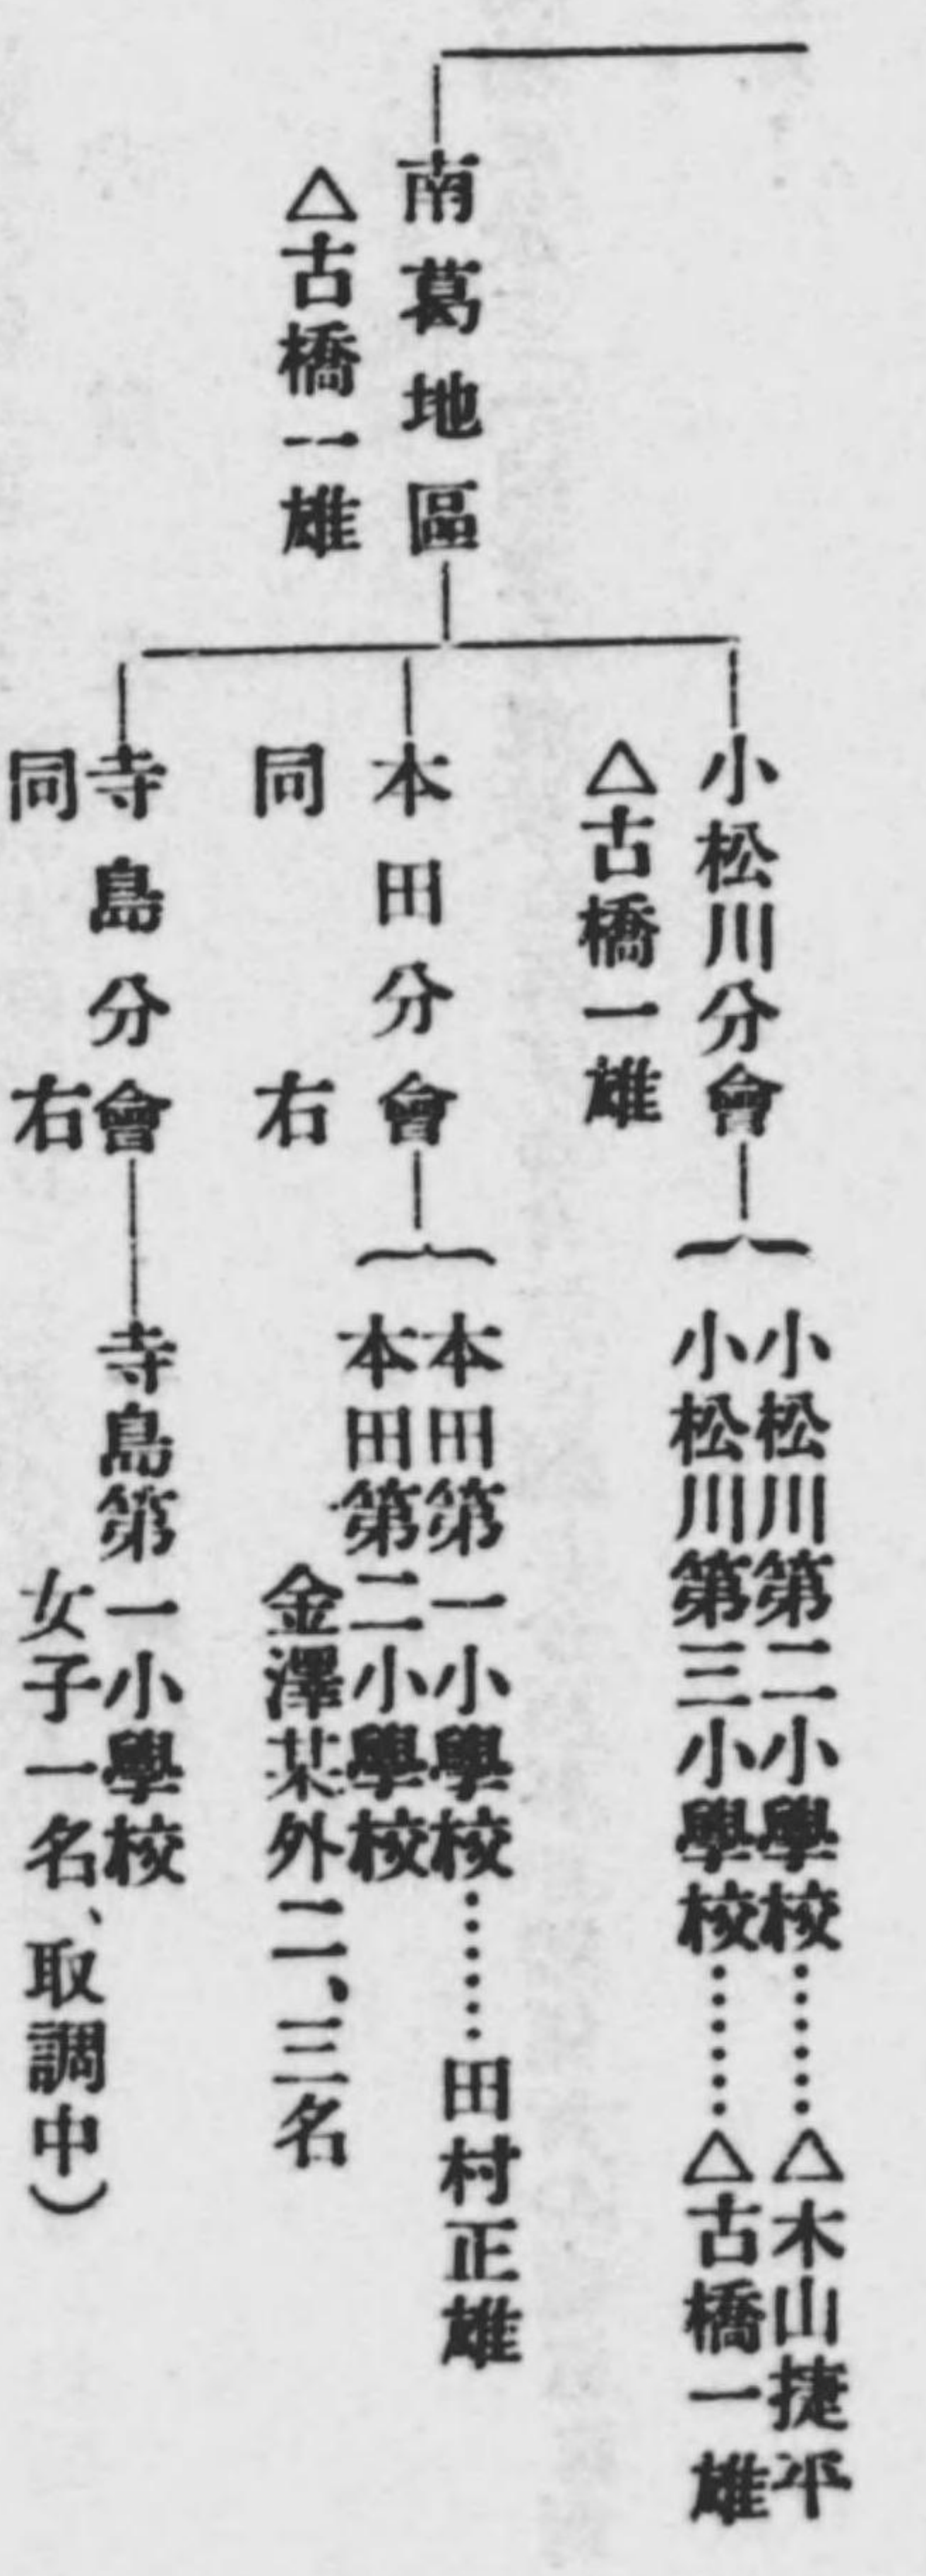 南葛地區
△古橋一雄
小松川分會
△古橋一雄
小松川第二小學校……△木山捷平
小松川第三小學校……△古橋一雄
本田分會
同右
本田第一小學校……田村正雄
本田第二小學校
金澤某外二、三名
寺島分會
同右
寺島第一小學校
女子一名、取調中）